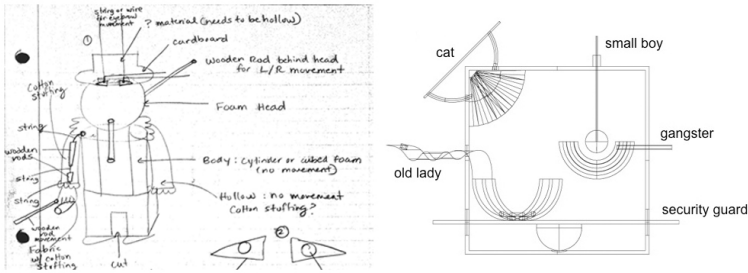 string or wire
for eyebrow
movement
? material (needs to be hollow)
①
cardboard
wooden Rod behind head
for L/R movement
Cotton
stuffing
Foam Head
string
wooden
rods
string
string
Body: cylinder or cubed foam
(no movement)
Hollow: no movement
Cotton stuffing?
wooden
rod
movement
Fabric
w/ cotton
stuffing
cut
②
cat
small boy
gangster
old lady
security guard